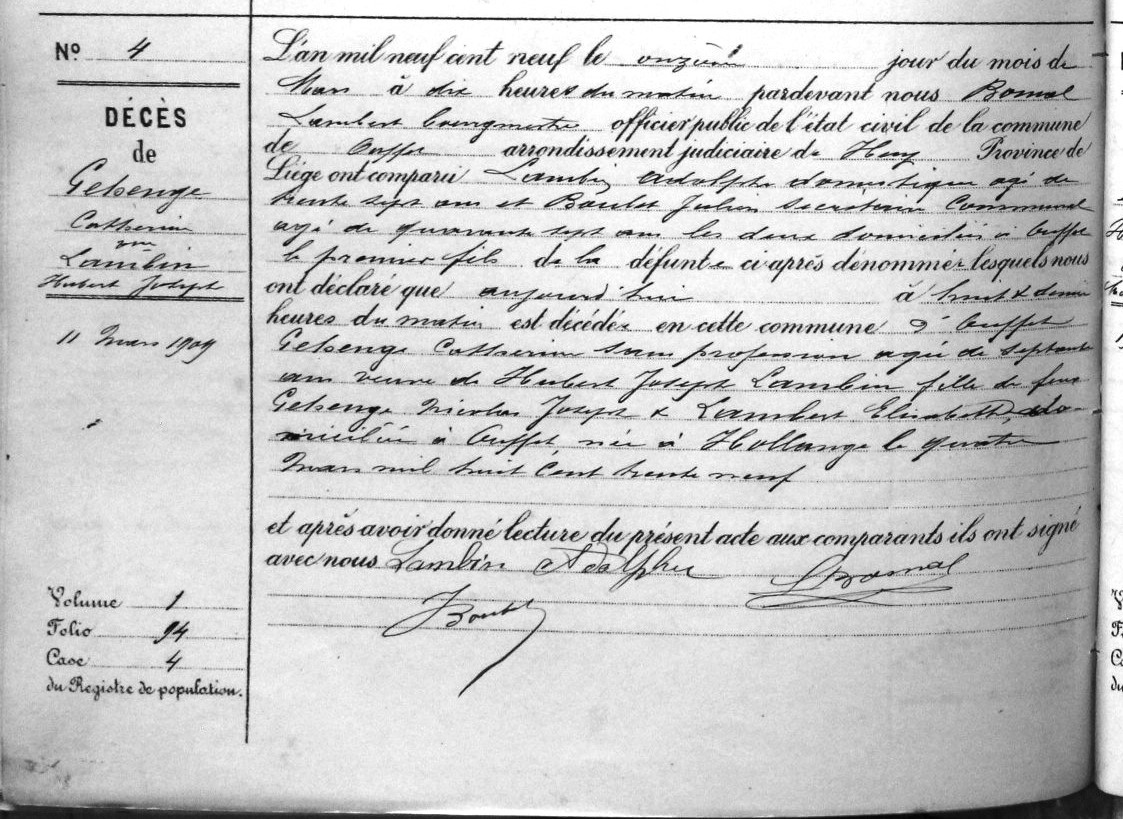 Nº 4
DÉCÈS
de
Gelhenge
Catherine
vve
Lambin
Hubert Joseph
11 Mars 1909
Volume 1
Folio 94
Case 4
du Registre de population.
L'an mil neuf cent neuf le onzième jour du mois de
Mars à dix heures du matin pardevant nous Bomal
Lambert bourgmestre officier public de l'état civil de la commune
de Ouffet arrondissement judiciaire de Huy Province de
Liége ont comparu Lambin Adolphe domestique agé de
trente sept ans et Boulet Julien secrétaire Communal
agé de quarante sept ans les deux domiciliés à Ouffet
le premier fils de la défunte ci après dénommée lesquels nous
ont déclaré que aujourd'hui à huit & demie
heures du matin est décédée en cette commune d'Ouffet
Gelhenge Catherine sans profession agée de septante
ans veuve de Hubert Joseph Lambin fille de feus
Gelhenge Nicolas Joseph & Lambert Elisabeth, do-
miciliée à Ouffet née à Hollange le quatre
Mars mil huit cent trente neuf
et après avoir donné lecture du présent acte aux comparants ils ont signé
avec nous Lambin Adolphe LBomal
JBoulet